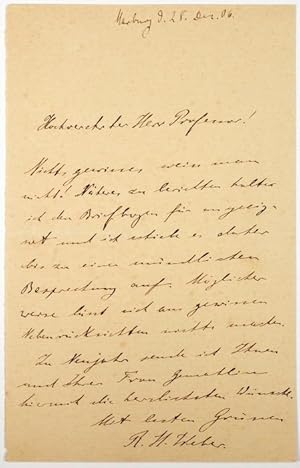 Marburg d. 28. Dez. 06.
Hochverehrter Herr Professor!
Nichts gewisses weiss man
nicht! Näheres zu berichten halte
ich den Briefbogen für ungeeig-
net und ich schiebe es daher
bis zu einer mündlichen
Besprechung auf. Möglicher
weise lässt sich aus gewissen
Nebenrücksichten nichts machen.
Zu Neujahr sende ich Ihnen
und Ihrer Frau Gemahlin
hiermit die herzlichsten Wünsche.
Mit besten Grüssen
R. H. Weber.